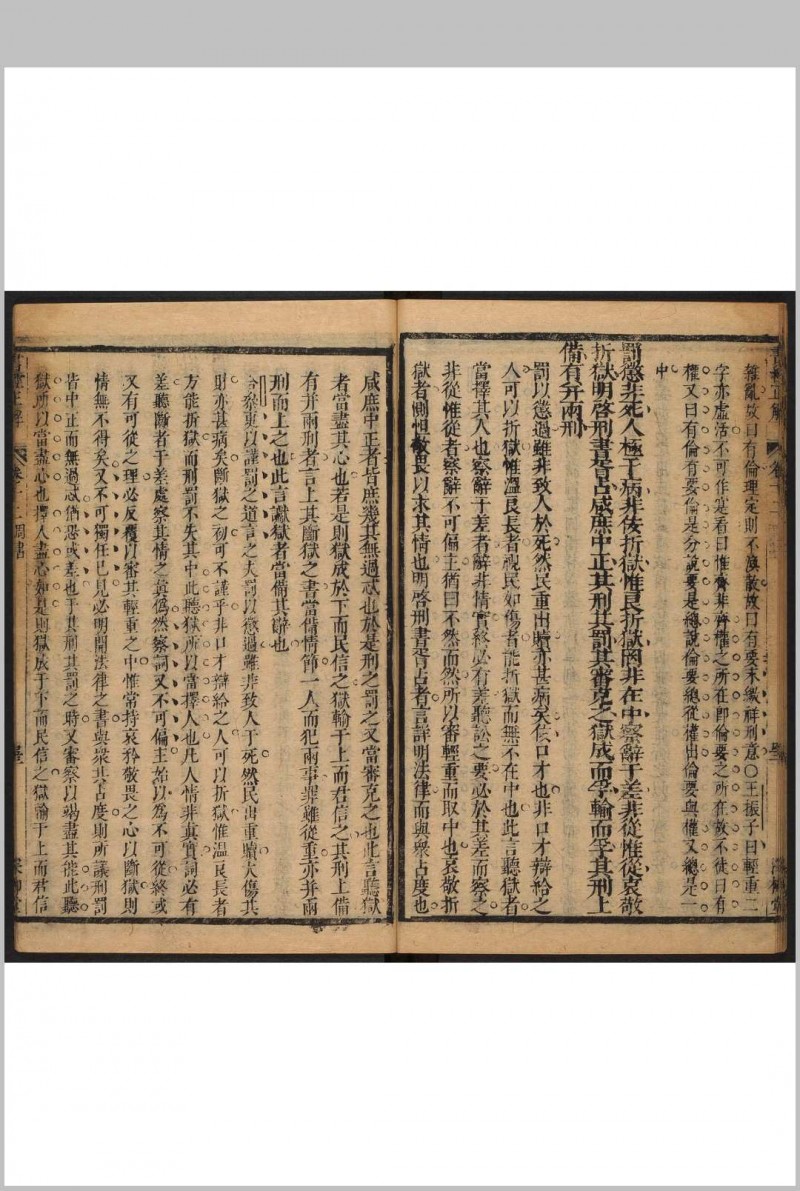 雜亂故曰有倫理定則不渙散故曰有要末繳祥刑意○王振子曰輕重二
字亦虛活不可作寔看曰惟齊非齊權之所在即倫要之所在故不徒曰有
權又曰有倫有要倫是分說要是總說倫要總從權出倫要與權又總是一
中
罰懲非死人極于病非佞折獄惟良折獄罔非在中察辭于差非從惟從哀敬
折獄明啓刑書胥占咸庶中正其刑其罰其審克之獄成而孚輸而孚其刑上
備有并兩刑
罰以懲過雖非致人於死然民重出贖亦甚病矣佞口才也非口才辯給之
人可以折獄惟溫良長者視民如傷者能折獄而無不在中也此言聽獄者
當擇其人也察辭于差者辭非情實終必有差聽訟之要必於其差而察之
非從惟從者察辭不可偏主猶曰不然而然所以審輕重而取中也哀敬折
獄者惻怛敬畏以求其情也明啓刑書胥占者言詳明法律而與衆占度也
咸庶中正者皆庶幾其無過忒也於是刑之罰之又當審克之也此言聽獄
者當盡其心也若是則獄成於下而民信之獄輸于上而君信之其刑上備
有并兩刑者言上其斷獄之書當備情節一人而犯兩事罪雖從重亦并兩
刑而上之也此言讞獄者當備其辭也
合纂更以謹罰之道言之夫罰以懲過雖非致人于死然民出重贖大傷其
財亦甚病矣斷獄之初可不謹乎非口才辯給之人可以折獄惟溫良長者
方能折獄而刑罰不失其中此聽獄所以當擇人也凡人情非真實詞必有
差聽斷者于差處察其情之真僞然察詞又不可偏主始以為不可從終或
又有可從之理必反覆以審其輕重之中惟常持哀矜敬畏之心以斷獄則
情無不得矣又不可獨任已見必明開法律之書與衆其占度則所議刑罰
皆中正而無過忒猶恐或差也于其刑其罰之時又審察以竭盡其能此聽
獄所以當盡心也擇人盡心如是則獄成于下而民信之獄輸于上而君信